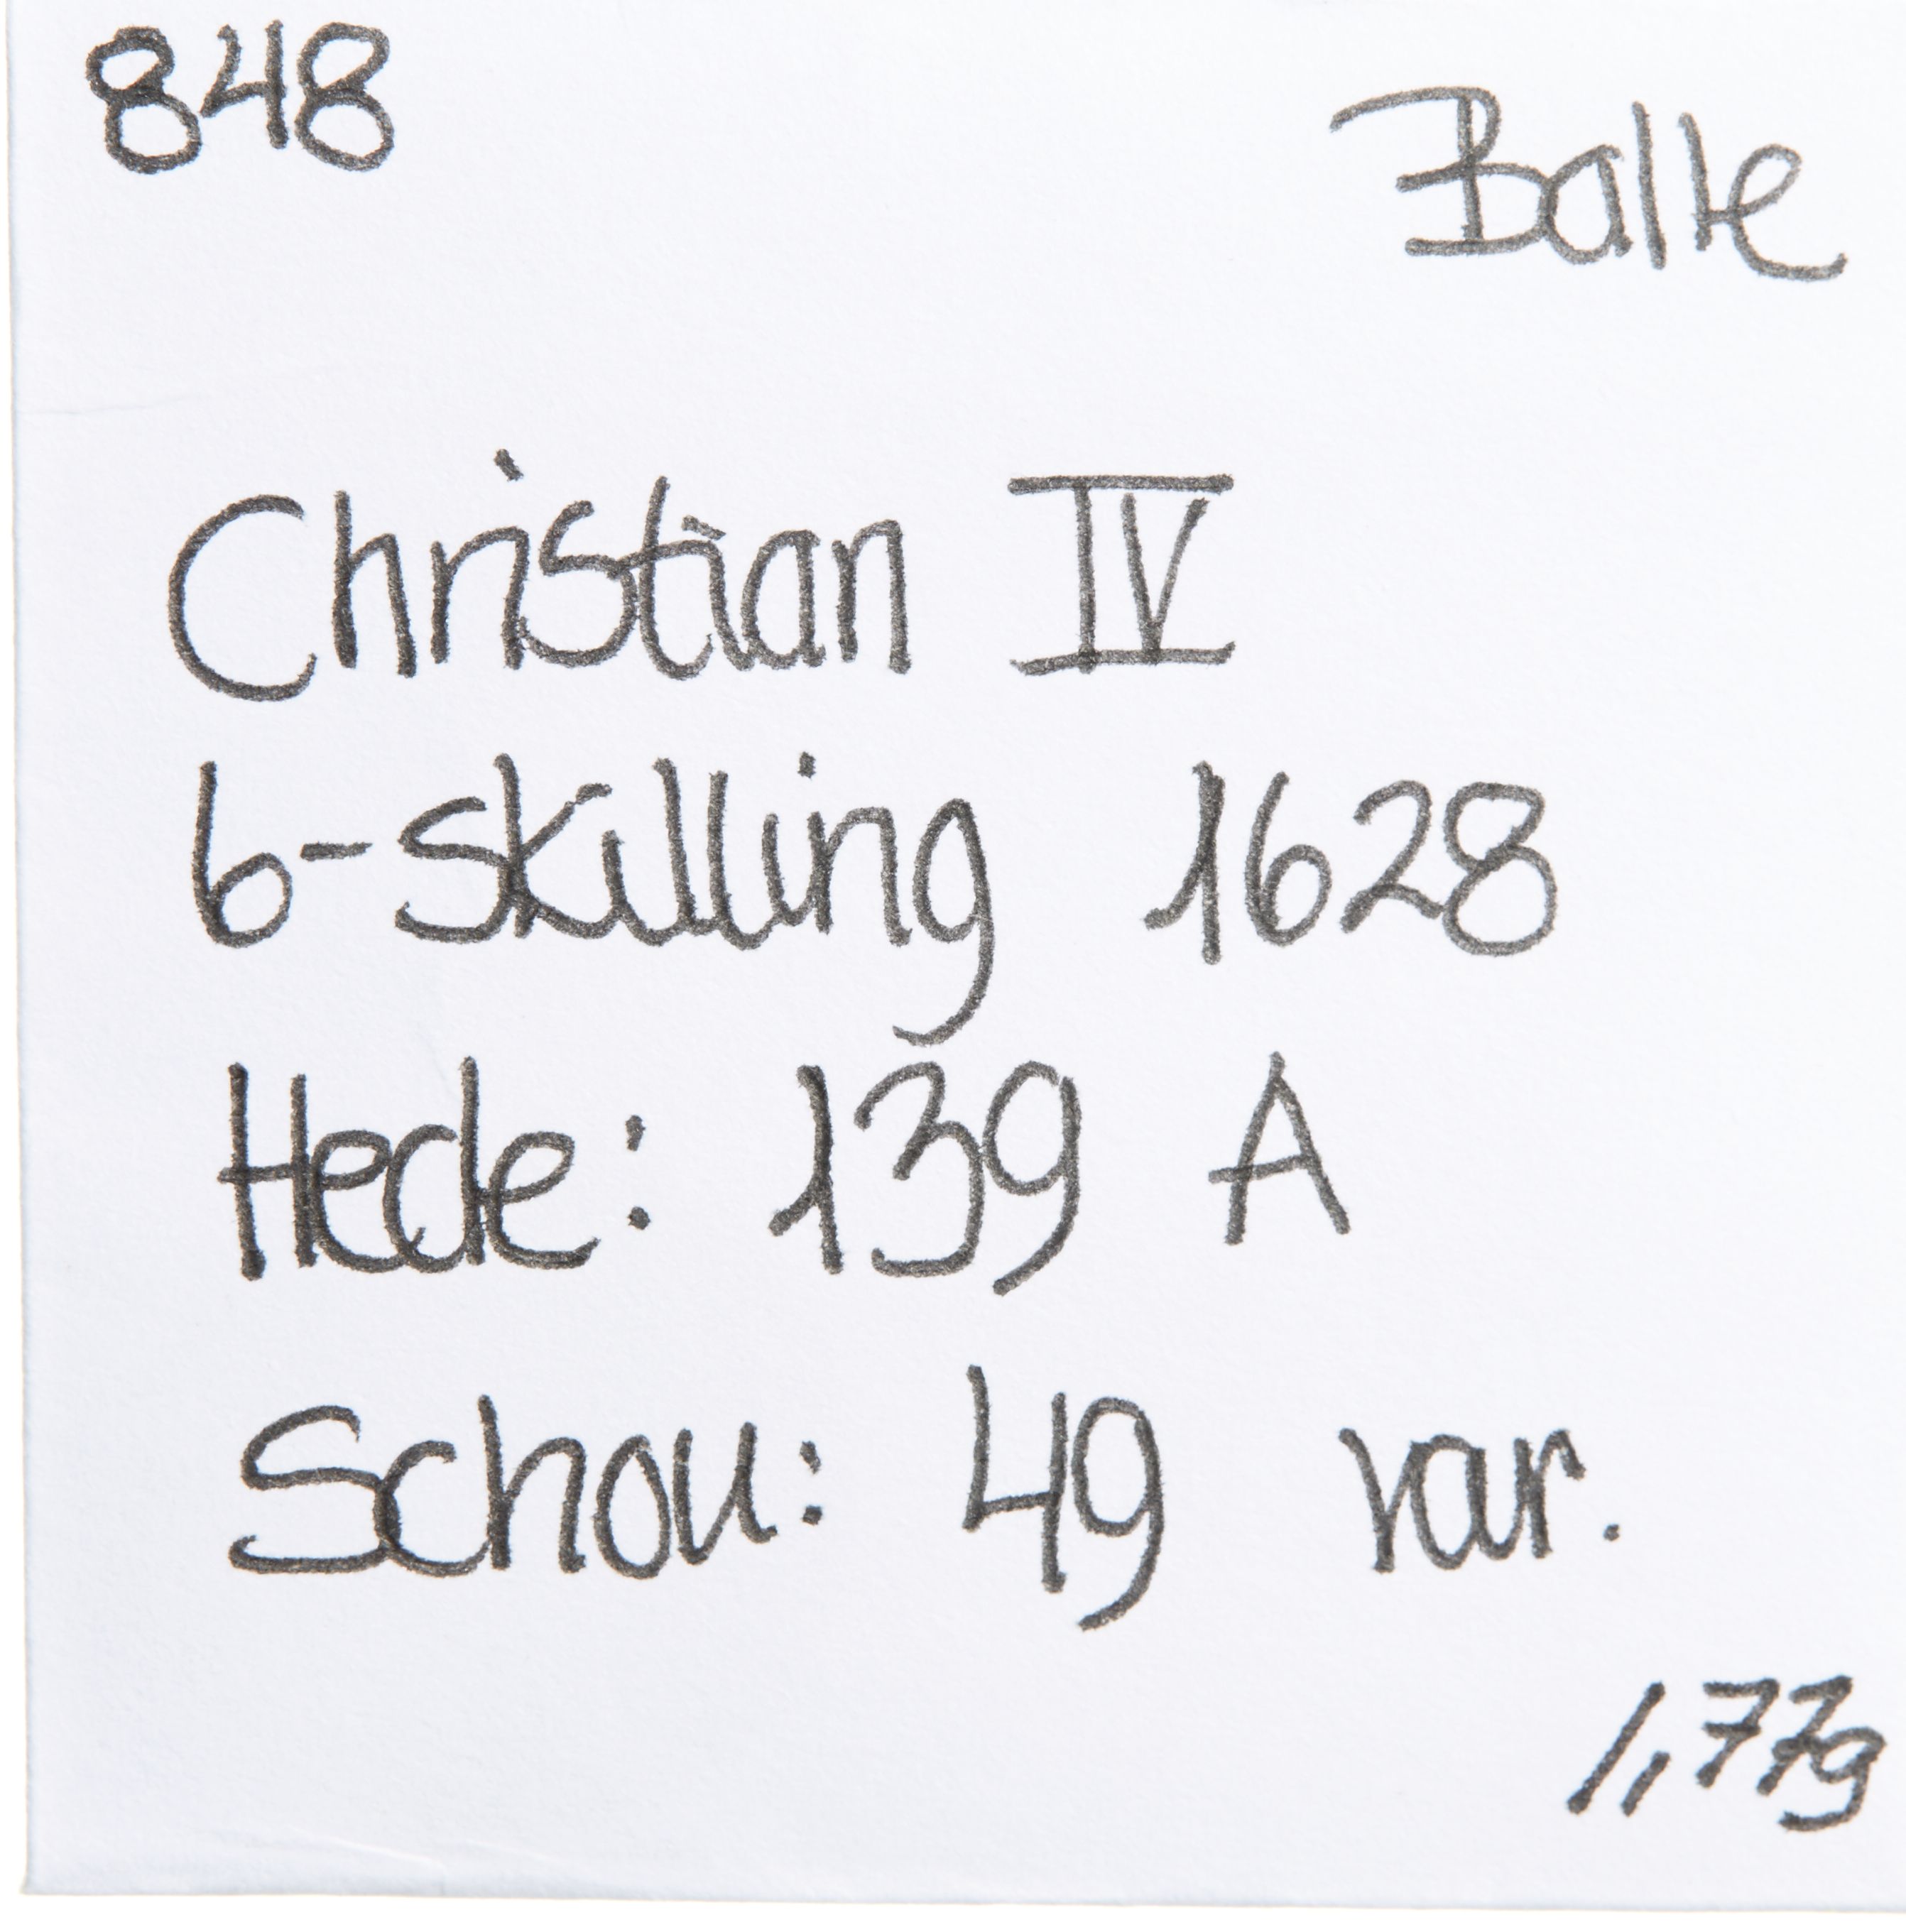 848
Balle
Christian IV
6-skilling 1628
Hede: 139 A
Schou: 49 var.
1,77g